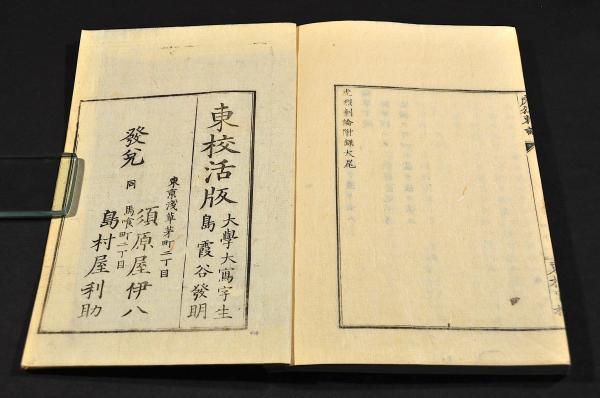 虎烈剌論附錄大尾
東校活版
大學大寫字生
島霞谷發明
發兌
東京浅草茅町二丁目
須原屋伊八
同 馬喰町二丁目
島村屋利助